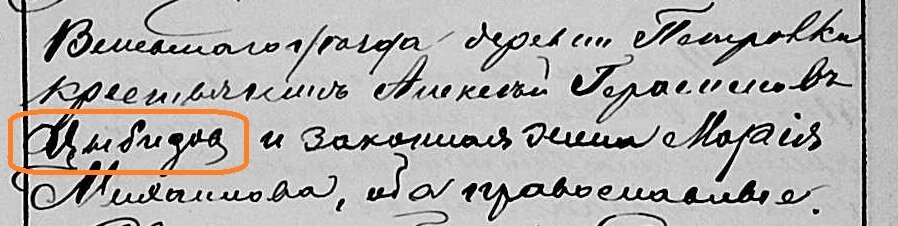 Венёвскаго уѣзда деревни Петровки
крестьянинъ Алексѣй Герасимовъ
и законная жена Марія
Михаилова, оба православные.